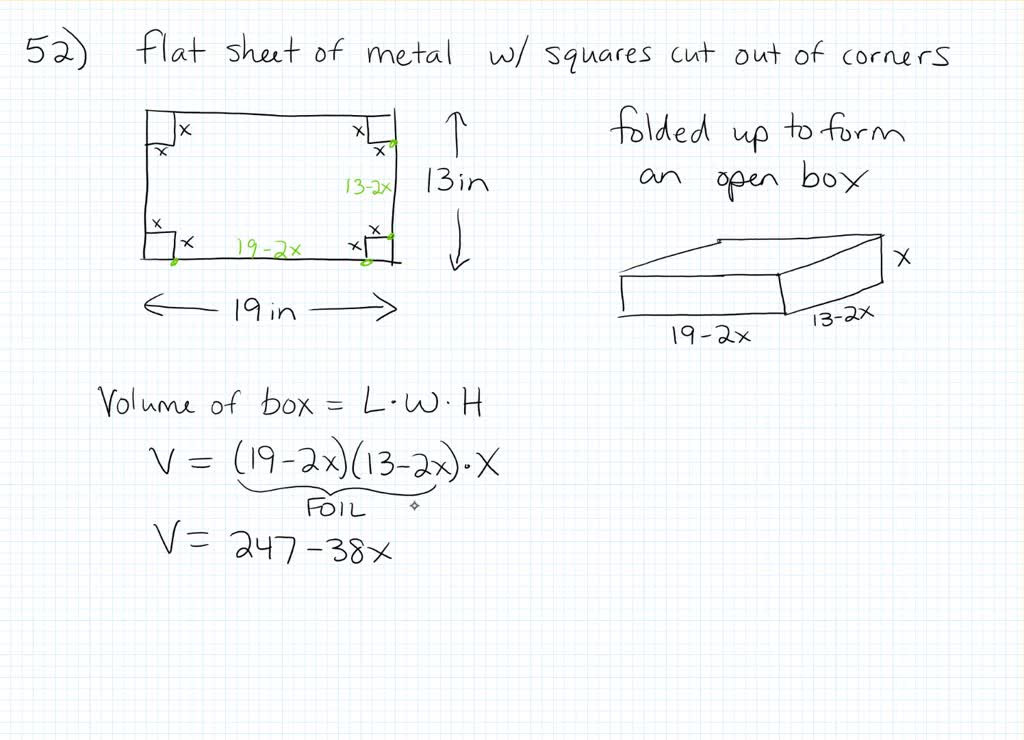 52) flat sheet of metal w/ squares cut out of corners
x x
x x
13-2x
13 in
x x
x 19-2x x
19 in
folded up to form
an open box
x
13-2x
19-2x
Volume of box = L·W·H
V = (19-2x)(13-2x)·X
FOIL
V = 247-38x